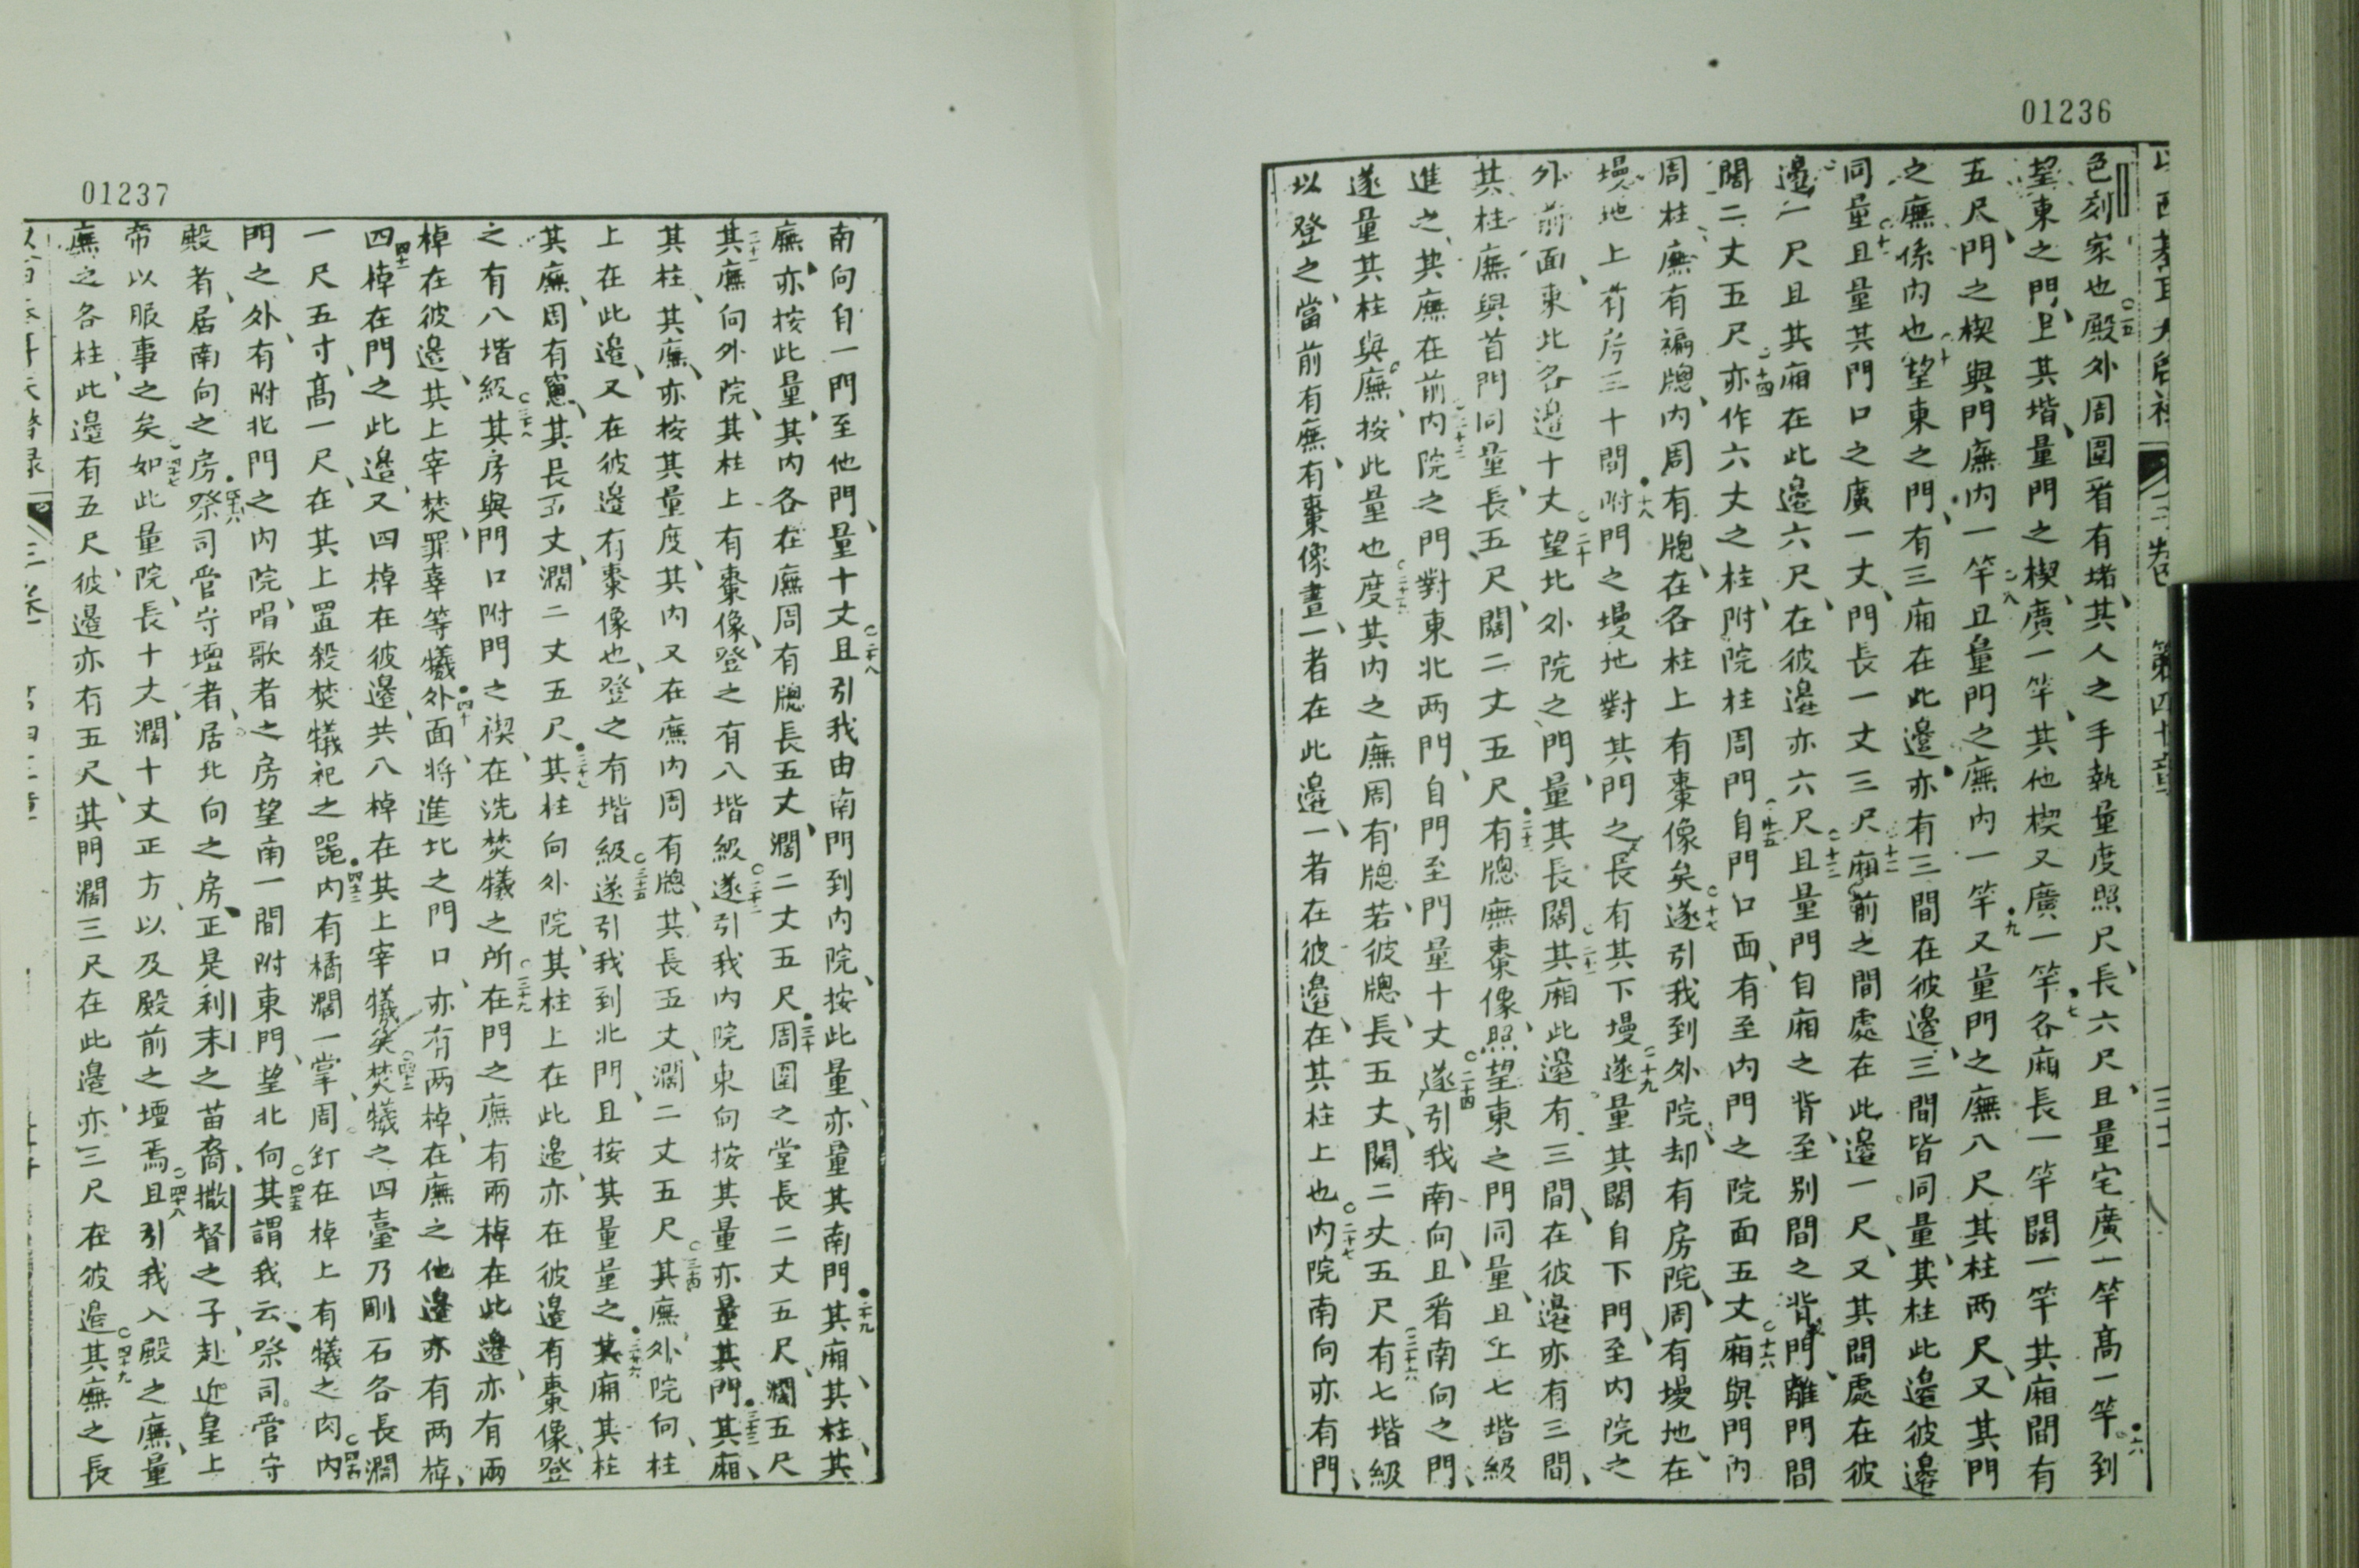 01236
色刻家也殿外周圍看有堵其人之手執量度照尺長六尺且量宅廣一竿高一竿到
望東之門上其堦量門之楔廣一竿其他楔又廣一竿各廂長一竿闊一竿其廂間有
五尺門之楔與門廡內一竿且量門之廡內一竿又量門之廡八尺其柱两尺又其門
之廡係內也望東之門有三廂在此邉亦有三間在彼邉三間皆同量其柱此邉彼邉
同量且量其門口之廣一丈門長一丈三尺廂前之間處在此邉一尺又其間處在彼
邉一尺且其廂在此邉六尺在彼邉亦六尺且量門自廂之背至别間之背門離門間
闊二丈五尺亦作六丈之柱附院柱周門自門口面有至內門之院面五丈廂與門內
周柱廡有褊牕內周有牕在各柱上有棗像矣遂引我到外院却有房院周有墁地在
墁地上有房三十間附門之墁地對其門之長有其下墁遂量其闊自下門至內院之
外前面東北各邉十丈望北外院之門量其長闊其廂此邉有三間在彼邉亦有三間
其柱廡與首門同量長五尺闊二丈五尺有牕廡棗像照望東之門同量且上七堦級
進之其廡在前內院之門對東北两門自門至門量十丈遂引我南向且看南向之門
遂量其柱與廡按此量也度其內之廡周有牕若彼牕長五丈闊二丈五尺有七堦級
以登之當前有廡有棗像晝一者在此邉一者在彼邉在其柱上也內院南向亦有門
01237
南向自一門至他門量十丈且引我由南門到內院按此量亦量其南門其廂其柱其
廡亦按此量其內各在廡周有牕長五丈濶二丈五尺周圍之堂長二丈五尺濶五尺
其廡向外院其柱上有棗像登之有八堦級遂引我內院東向按其量亦量其門其廂
其柱其廡亦按其量度其內又在廡內周有牕其長五丈濶二丈五尺其廡外院向柱
上在此邉又在彼邉有棗像也登之有堦級遂引我到北門且按其量量之其廂其柱
其廡周有窻其長五丈濶二丈五尺其柱向外院其柱上在此邉亦在彼邉有棗像登
之有八堦級其房與門口附門之禊在洗焚犧之所在門之廡有兩棹在此邉亦有兩
棹在彼邉其上宰焚罪辜等犧外面將進北之門口亦有两棹在廡之他邉亦有两棹
四棹在門之此邉又四棹在彼邉共八棹在其上宰犧矣焚犧之四臺乃剛石各長濶
一尺五寸高一尺在其上置殺焚犧祀之噐內有橘濶一掌周釘在棹上有犧之肉內
門之外有附北門之內院唱歌者之房望南一間附東門望北向其謂我云祭司管守
殿者居南向之房祭司管守壇者居北向之房正是利末之苗裔撒督之子赴近皇上
帝以服事之矣如此量院長十丈濶十丈正方以及殿前之壇焉且引我入殿之廡量
廡之各柱此邉有五尺彼邉亦有五尺其門濶三尺在此邉亦三尺在彼邉其廡之長